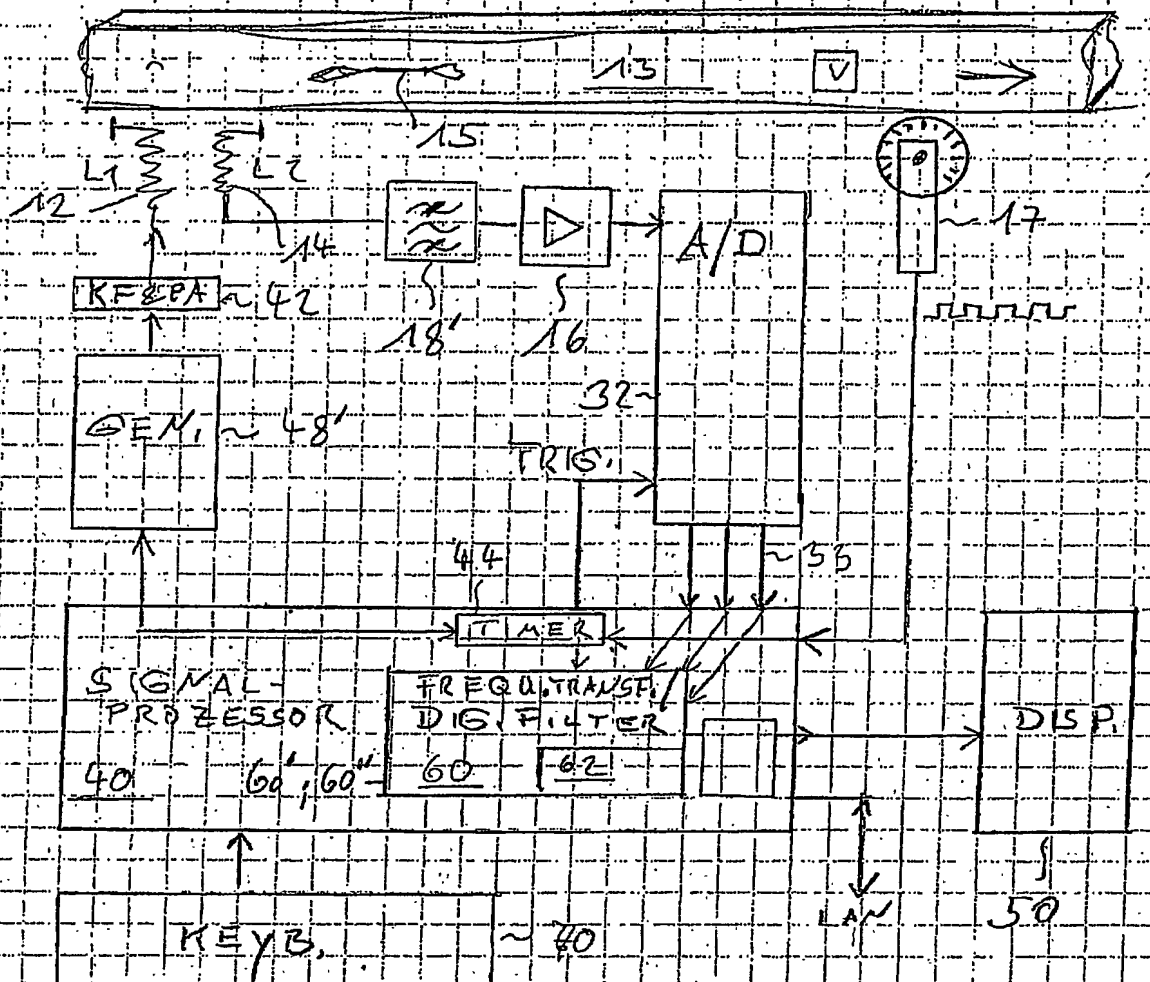 13
V
15
L1
L2
12
14
17
A/D
KF&PA
42
18'
16
GEN.
48'
32
TRIG.
44
33
TIMER
SIGNAL-
PROZESSOR
40
60', 60"
FREQU.TRANSF.
DIG.FILTER
60
62
DISP.
LAN
50
KEYB.
70